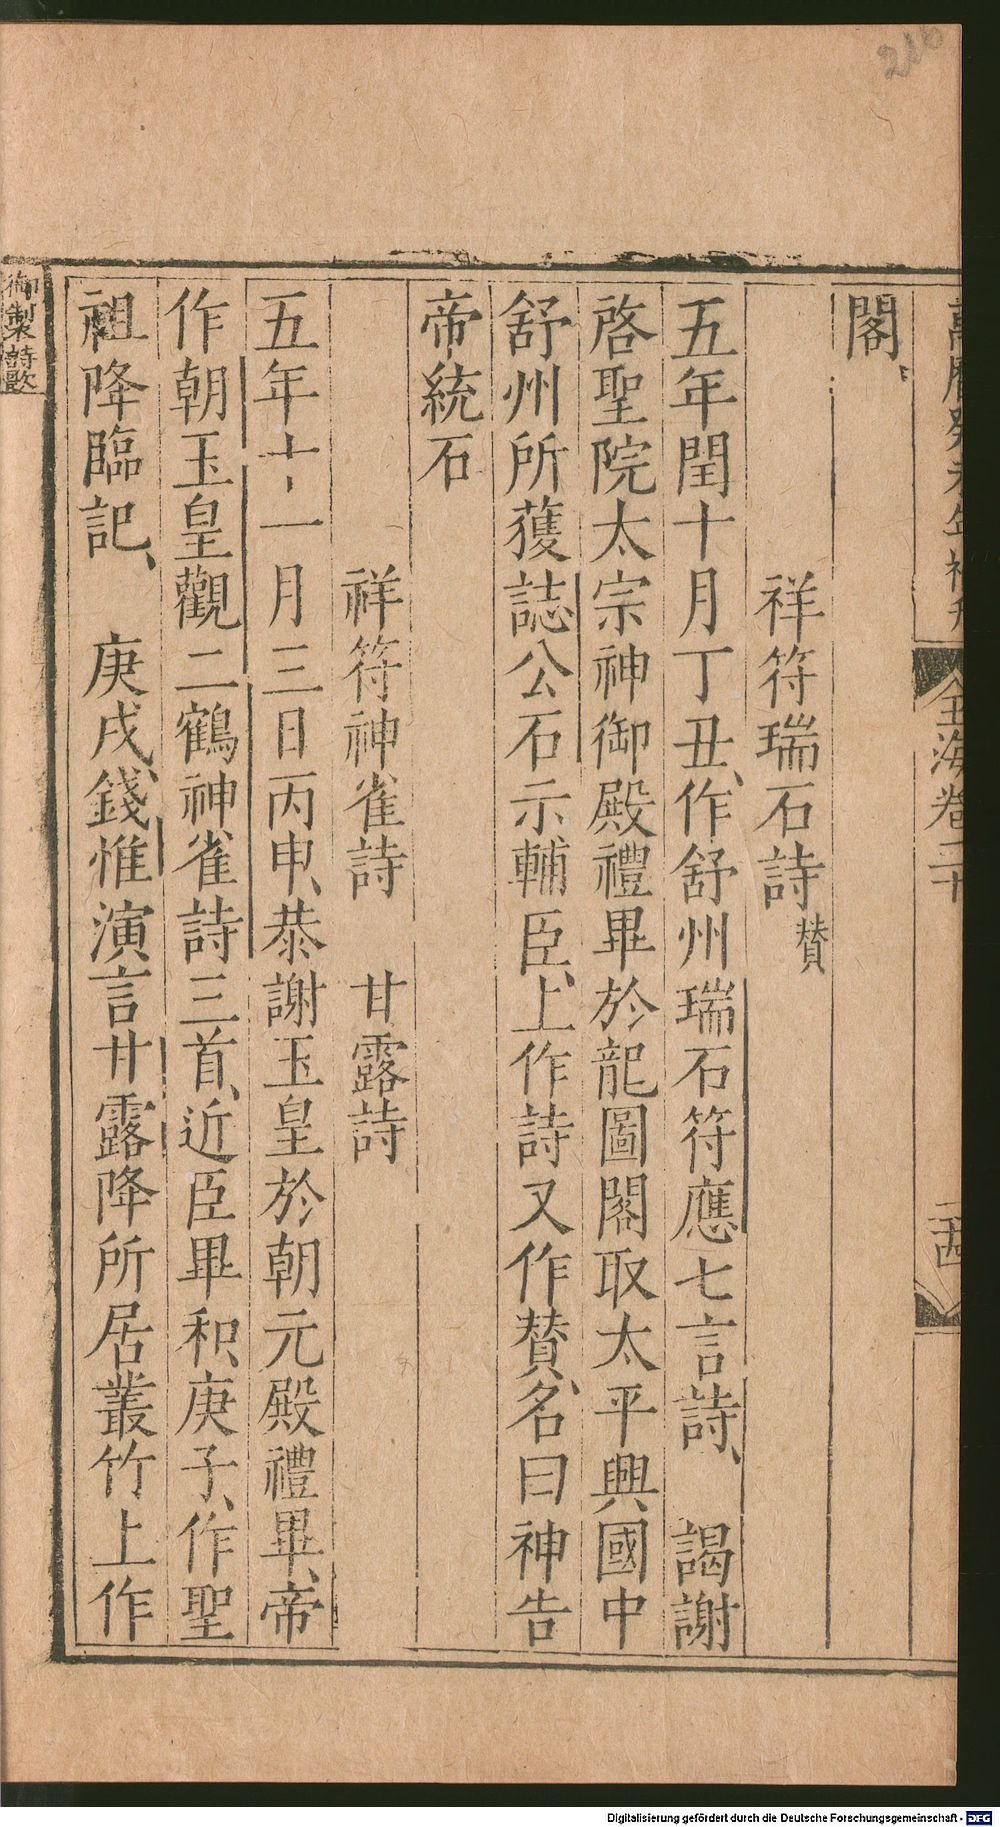 216
閣
祥符瑞石詩贊
五年閏十月丁丑作舒州瑞石符應七言詩　謁謝
啓聖院太宗神御殿禮畢於龍圖閣取太平興國中
舒州所獲誌公石示輔臣上作詩又作贊名曰神告
帝統石
祥符神雀詩　甘露詩
五年十一月三日丙申恭謝玉皇於朝元殿禮畢帝
作朝玉皇觀二鶴神雀詩三首近臣畢和庚子作聖
祖降臨記　庚戌錢惟演言甘露降所居叢竹上作
御製詩歌
Digitalisierung gefördert durch die Deutsche Forschungsgemeinschaft - DFG